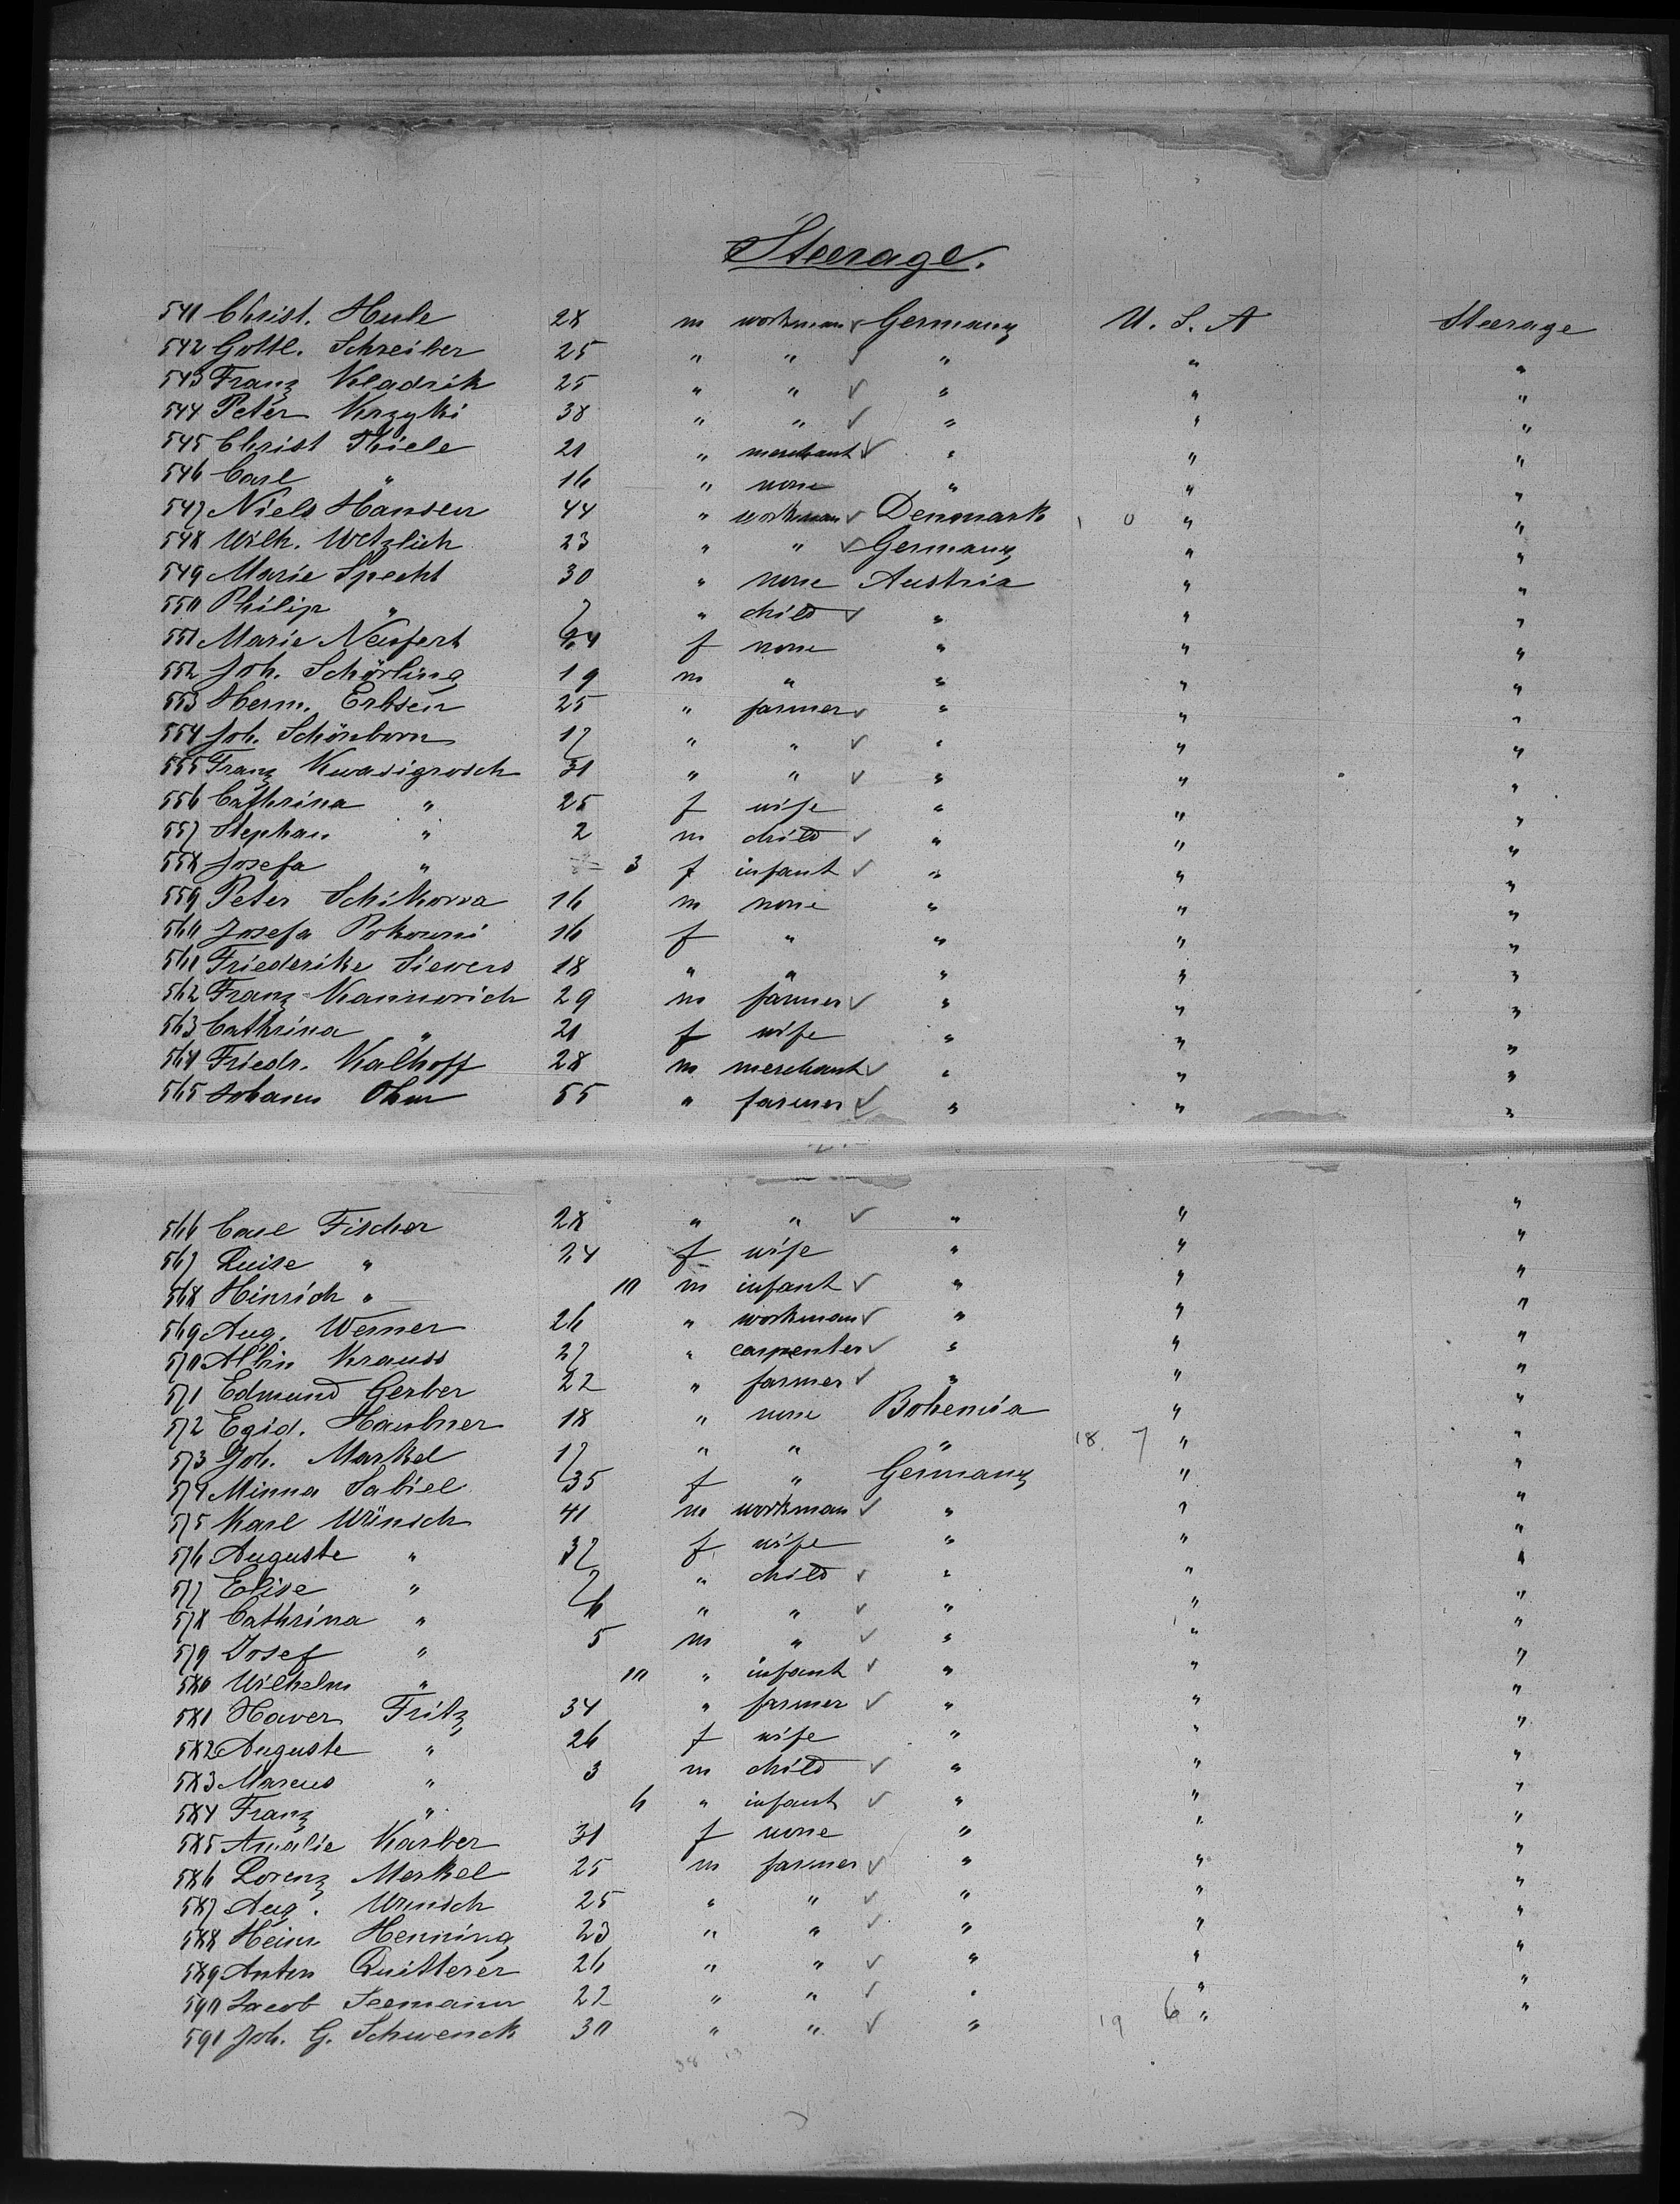 Steerage.
541 Christ. Hule 28 m workman ✓ Germany U. S. A Steerage
542 Gottl. Schreiber 25 " " ✓ " " "
543 Franz Kladrik 25 " " ✓ " " "
544 Peter Krzyki 38 " " ✓ " " "
545 Christ Thiele 21 " merchant ✓ " " "
546 Carl " 16 " none " " "
547 Niels Hansen 44 " workman ✓ Denmark 1 0 " "
548 Wilh. Wetzlich 23 " " ✓ Germany " "
549 Marie Specht 30 " none Austria " "
550 Philip " 7 " child ✓ " " "
551 Marie Neufert 24 f none " " "
552 Joh. Schörling 19 m " " " "
553 Herm. Erbsen 25 " farmer ✓ " " "
554 Joh. Schönborn 17 " " ✓ " " "
555 Franz Kwasigroch 31 " " ✓ " " "
556 Cathrina " 25 f wife " " "
557 Stephan " 2 m child ✓ " " "
558 Josefa " 3 f infant ✓ " " "
559 Peter Schikorra 16 m none " " "
560 Josefa Pokowni 16 f " " " "
561 Friederike Sievers 18 " " " " "
562 Franz Kannorich 29 m farmer ✓ " " "
563 Cathrina " 21 f wife " " "
564 Friedr. Kalhoff 28 m merchant ✓ " " "
565 Johann Ohm 55 " farmer ✓ " " "
566 Carl Fischer 28 " " ✓ " " "
567 Luise " 24 f wife " " "
568 Hinrich " 10 m infant ✓ " " "
569 Aug. Werner 26 " workman ✓ " " "
570 Albin Krauss 27 " carpenter ✓ " " "
571 Edmund Gerber 22 " farmer ✓ " " "
572 Egid. Haubner 18 " none Bohemia " "
573 Joh. Markel 17 " " " 18. 7 " "
574 Minna Sabiel 35 f " Germany " "
575 Karl Wünsch 41 m workman ✓ " " "
576 Auguste " 37 f wife " " "
577 Elise " 7 " child ✓ " " "
578 Cathrina " 6 " " ✓ " " "
579 Josef " 5 m " ✓ " " "
580 Wilhelm " 10 " infant ✓ " " "
581 Haver Fritz 34 " farmer ✓ " " "
582 Auguste " 26 f wife " " "
583 Marcus " 3 m child ✓ " " "
584 Franz " 6 " infant ✓ " " "
585 Amalie Karber 31 f none " " "
586 Lorenz Merkel 25 m farmer ✓ " " "
587 Aug. Wunsch 25 " " ✓ " " "
588 Hein Henning 23 " " ✓ " " "
589 Anton Quitterer 26 " " ✓ " " "
590 Jacob Seemann 22 " " ✓ " " "
591 Joh. G. Schwenck 30 " " ✓ " 19 6 " "